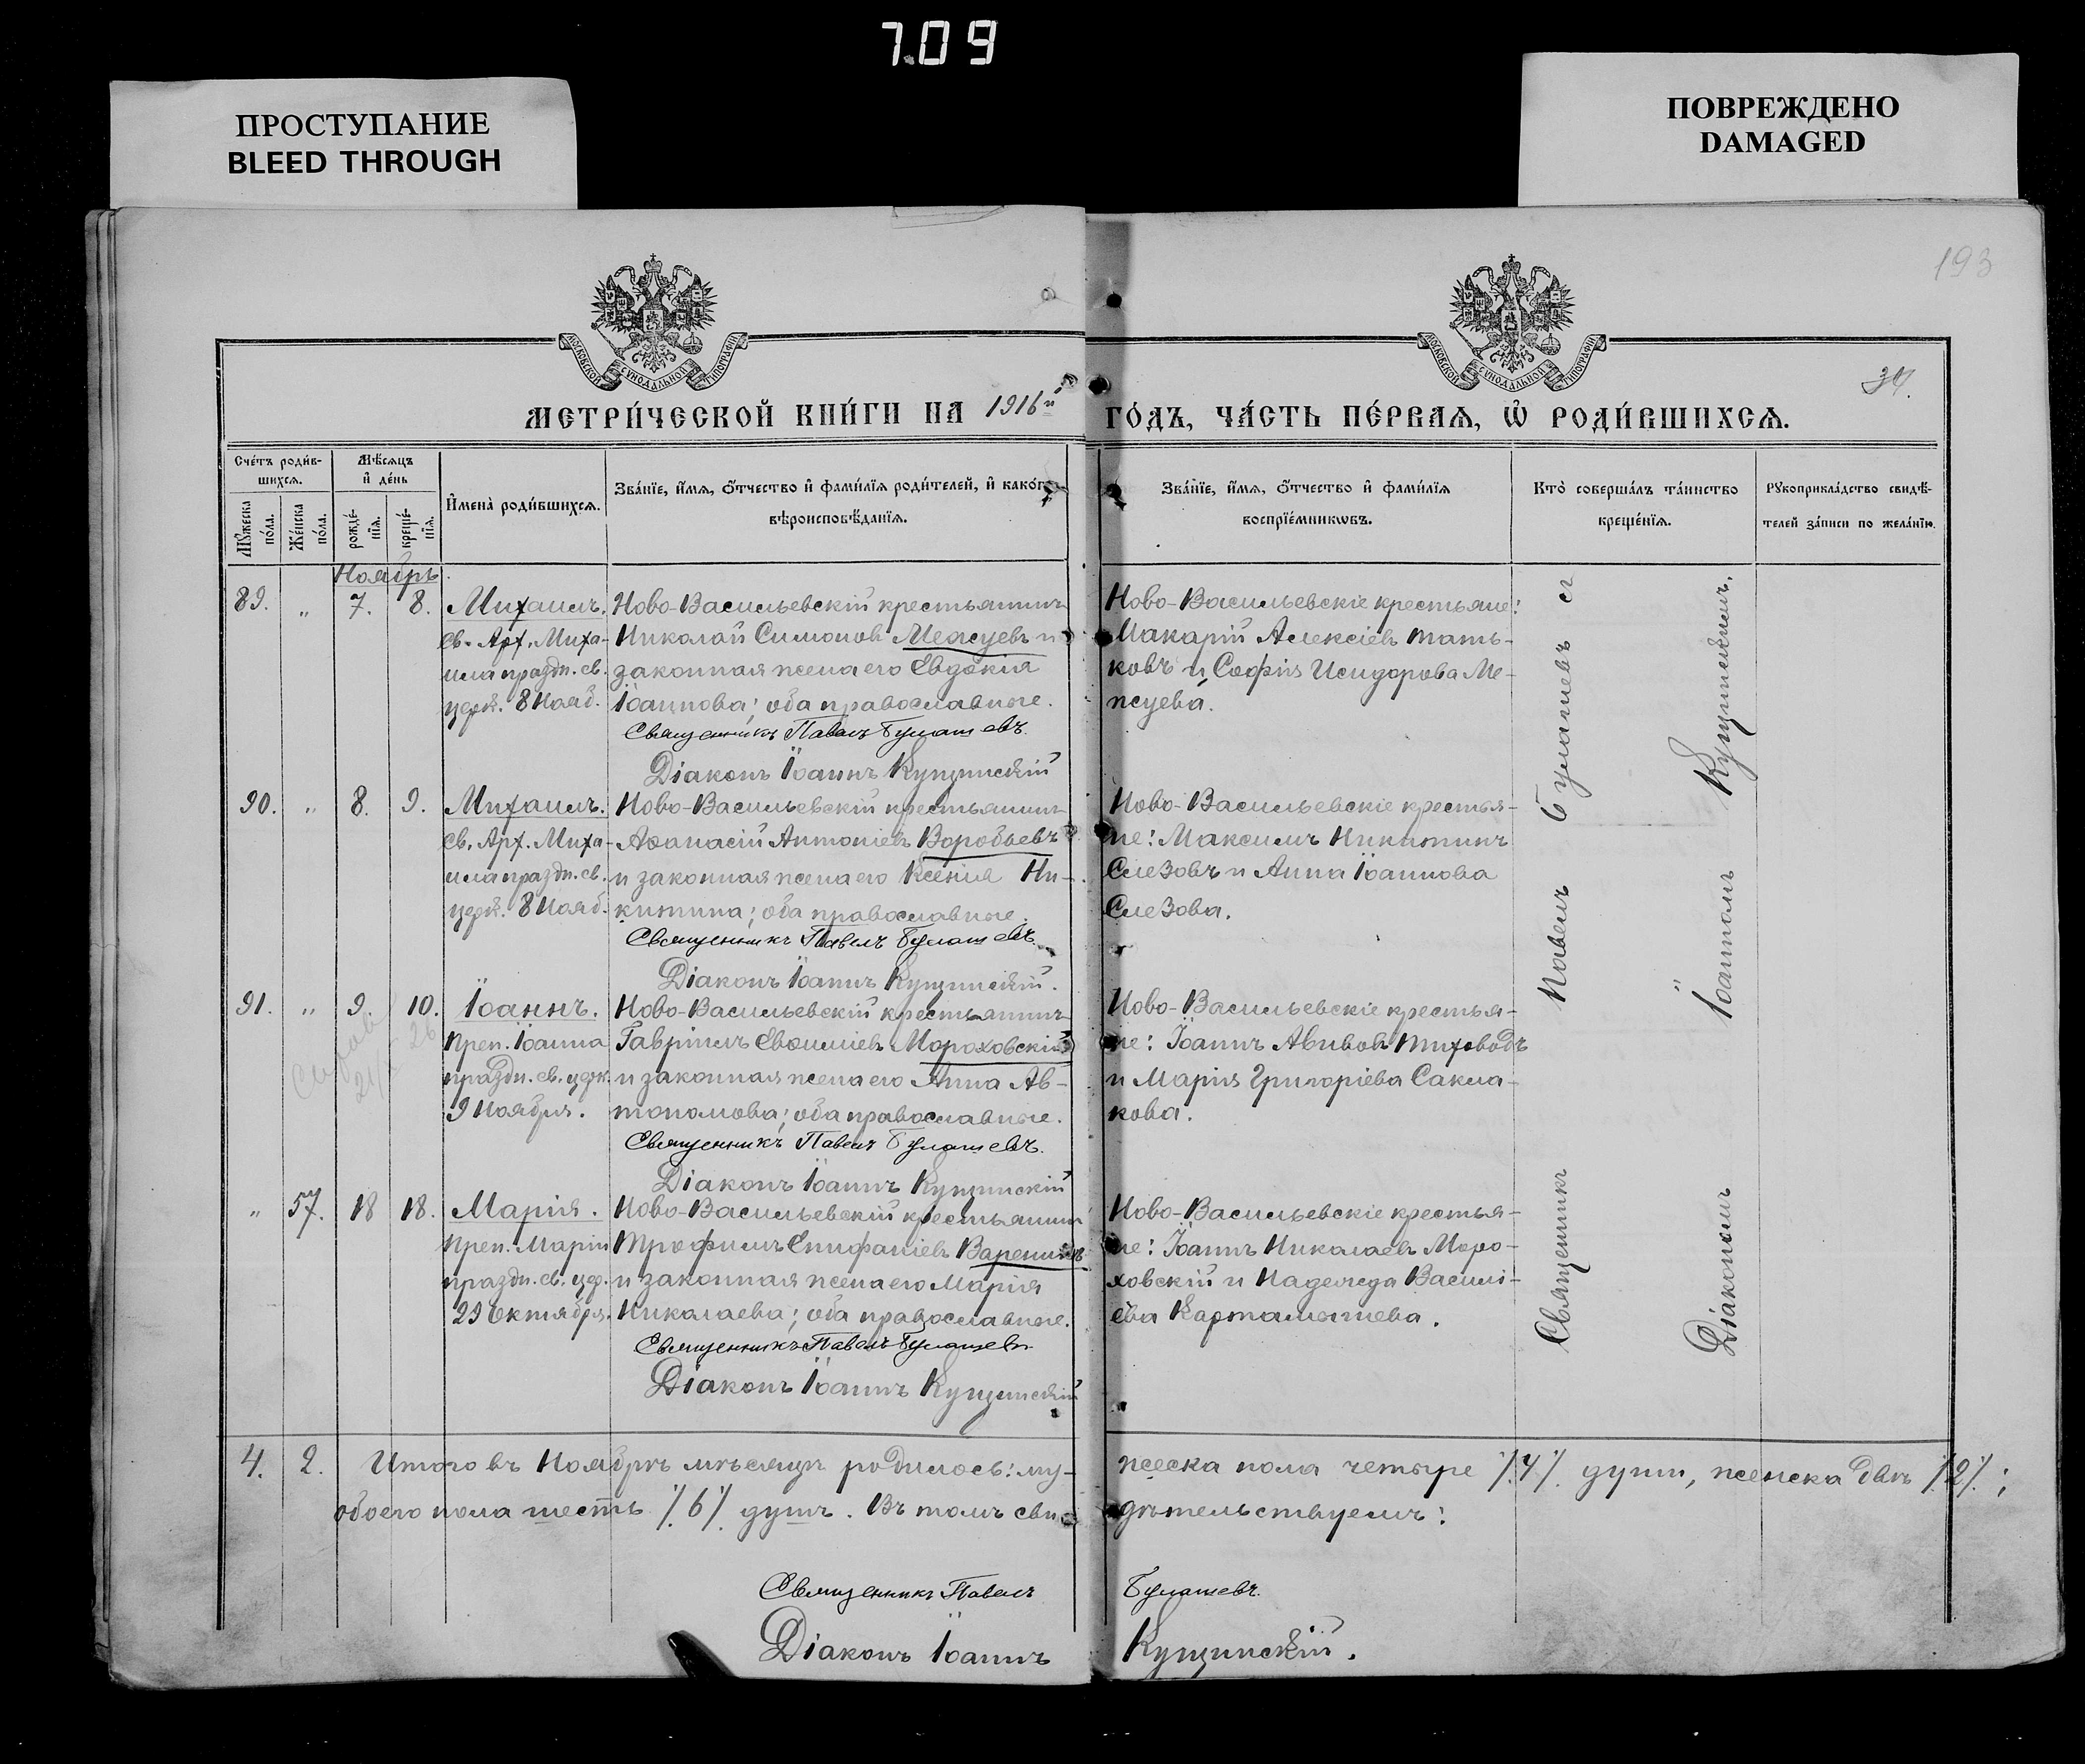 7.09
ПРОСТУПАНИЕ
BLEED THROUGH
ПОВРЕЖДЕНО
DAMAGED
193
МОСКОВСКОЙ СѴНОДАЛЬНОЙ ТИПОГРАФІИ
МОСКОВСКОЙ СѴНОДАЛЬНОЙ ТИПОГРАФІИ
34.
МЕТРИ́ЧЕСКОЙ КНИ́ГИ НА 1916й
ГО́ДЪ, ЧА́СТЬ ПЕ́РВАѦ, Ѡ҆ РОДИ́ВШИХСѦ.
Сче́тъ роди́в-
шихсѧ.
Мѣ́сѧцъ
и҆ де́нь
Мꙋ́жеска
по́ла.
Же́нска
по́ла.
рожде́-
нїѧ.
креще́-
нїѧ.
И҆мена̀ роди́вшихсѧ.
Зва́нїе, и҆́мѧ, ѻ҆́тчество и҆ фами́лїѧ роди́телей, и҆ како́гѡ
вѣроисповѣ́данїѧ.
Зва́нїе, и҆́мѧ, ѻ҆́тчество и҆ фами́лїѧ
воспрїе́мникѡвъ.
Кто̀ соверша́лъ та́инство
креще́нїѧ.
Рꙋкоприкла́дство свидѣ́-
телей за́писи по жела́нїю.
Ноябрь.
89. „ 7. 8. Михаилъ.
Св. Арх. Миха-
ила праздн. св.
церк. 8 Нояб.
Ново-Васильевскій крестьянинъ
Николай Симоновъ Межуевъ и
законная жена его Евдокія
Іоаннова; оба православные.
Священникъ Павелъ Булашевъ.
Діаконъ Іоаннъ Кущинскій
Ново-Васильевскіе крестьяне:
Макарій Алексіевъ Тать-
ковъ и Софія Исидорова Ме-
жуева.
90. „ 8. 9. Михаилъ.
Св. Арх. Миха-
ила праздн. св.
церк. 8 Нояб.
Ново-Васильевскій крестьянинъ
Аѳанасій Антоніевъ Воробьевъ
и законная жена его Ксенія Ни-
китина; оба православные.
Священникъ Павелъ Булашевъ.
Діаконъ Іоаннъ Кущинскій.
Ново-Васильевскіе крестья-
не: Максимъ Никитинъ
Слезовъ и Анна Іоаннова
Слезова.
91. „ 9. 10. Іоаннъ.
Преп. Іоанна
праздн. св. церк.
9 Ноября.
Ново-Васильевскій крестьянинъ
Гавріилъ Евѳиміевъ Мороховскій
и законная жена его Анна Ав-
тономова; оба православные.
Священникъ Павелъ Булашевъ.
Діаконъ Іоаннъ Кущинскій
Ново-Васильевскіе крестья-
не: Іоаннъ Авивовъ Тиховодъ
и Марія Григоріева Сакла-
кова.
„ 57. 18 18. Марія.
Преп. Маріи
праздн. св. цер.
29 Октября.
Ново-Васильевскій крестьянинъ
Трофимъ Епифаніевъ Варениковъ
и законная жена его Марія
Николаева; оба православные.
Священникъ Павелъ Булашевъ
Діаконъ Іоаннъ Кущинскій
Ново-Васильевскіе крестья-
не: Іоаннъ Николаевъ Моро-
ховскій и Надежда Василі-
ева Картамышева.
Священникъ Павелъ Булашевъ съ
Діакономъ Іоанномъ Кущинскимъ.
4. 2. Итого въ Ноябрѣ мѣсяцѣ родилось: му-
жеска пола четыре /4/ души, женска двѣ /2/;
обоего пола шесть /6/ душъ. Въ томъ сви-
дѣтельствуемъ:
Священникъ Павелъ Булашевъ.
Діаконъ Іоаннъ Кущинскій.